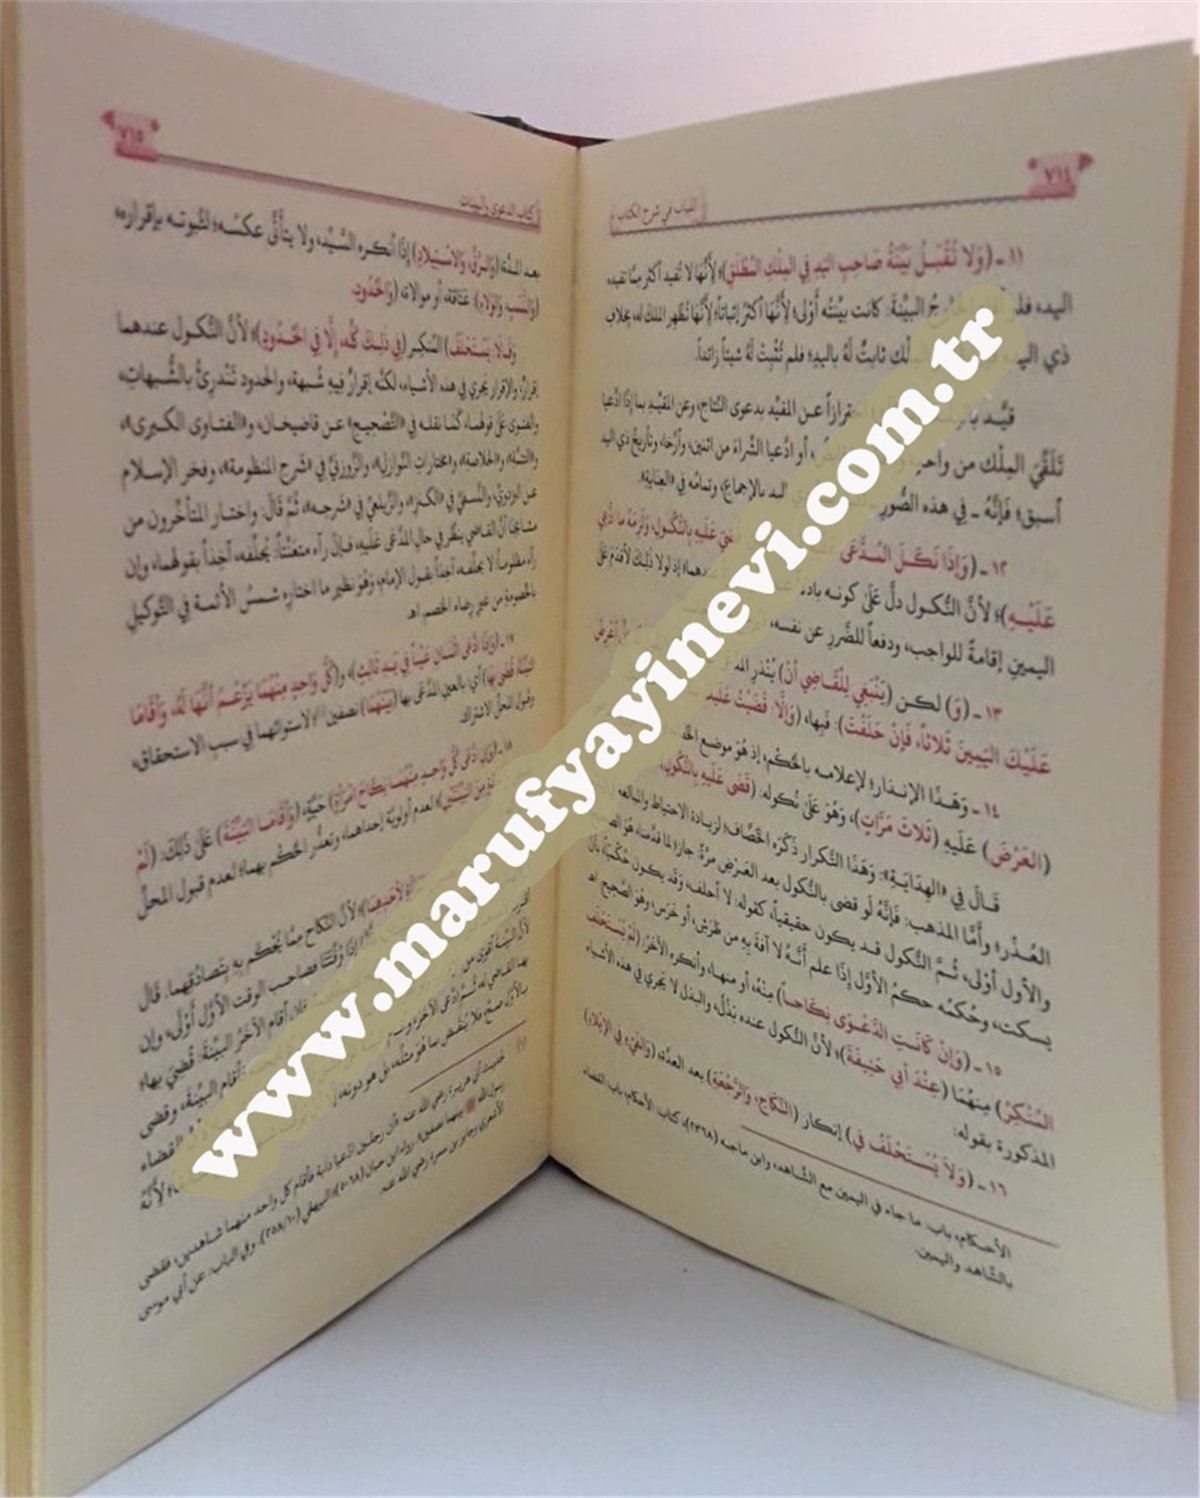 ٧١٤
اللباب في شرح الكتاب
١١ - (وَلَا تُقْبَلُ بَيِّنَةُ صَاحِبِ اليَدِ فِي المِلْكِ المُطْلَقِ)؛ لأَنَّهَا لا تُفيد أكثر مِمَّا تفيده
اليد، فلو أقام الخارجُ البيِّنةَ: كانت بيِّنتُه أَوْلى؛ لأنَّهَا أكثرُ إثباتاً؛ لأنَّهَا تُظهر الملكَ له، بخلاف
ذي اليد، ثابتٌ لَهُ باليدِ؛ فلم تُثْبِتْ لَهُ شيئاً زائداً.
قيَّد احترازاً عن المقيَّد بدعوى النَّتاج، وعن المقيَّد بما إذا ادَّعيا
تَلَقِّيَ المِلْك من واحدٍ، أو ادَّعيا الشِّراءَ من اثنين، وأرَّخا، وتاريخُ ذي اليد
أسبق؛ فإنَّهُ - في هذه الصُّور - اليد بالإجماع، وتمامُه في «العناية».
١٢ - (وَإِذَا نَكَلَ المُدَّعَى عَلَيْهِ بِالنُّكُولِ، وَلَزِمَهُ مَا ادُّعِيَ
عَلَيْهِ)؛ لأنَّ النُّكول دلَّ عَلَىٰ كونه عندهما؛ إذ لولا ذَلِكَ لأقدمَ عَلَىٰ
اليمين إقامةً للواجب، ودفعاً للضَّرر عن نفسه،
١٣ - (وَ) لكن (يَنْبَغِي لِلْقَاضِي أَنْ) يُنْذر
عَلَيْكَ اليَمِينَ ثَلَاثاً، فَإِنْ حَلَفْتَ): فَبِها، (وَإِلَّا: قَضَيْتُ عَلَيْكَ
١٤ - وَهَذَا الإنذار؛ لإعلامه بالحُكْم، إذ هُوَ موضع
(العَرْضَ) عَلَيْهِ (ثَلَاثَ مَرَّاتٍ)، وَهُوَ عَلَىٰ نُكوله: (قَضَى عَلَيْهِ بِالنُّكُولِ)
قَالَ في «الهِدَايَةِ»: وَهَذَا التَّكرار ذَكَرَه الخَصَّاف؛ لزيادة الاحتياط والمبالغة
العُذْر؛ وأمَّا المذهب: فَإِنَّهُ لَو قضى بالنُّكول بعد العَرْض مرَّةً: جاز؛ لما قدَّمنا، هُوَ
والأول أَوْلى، ثُمَّ النُّكول قد يكون حقيقياً، كقوله: لا أحلف، وَقَد يكون حُكْميّاً؛ بأنْ
يسكت، وحُكمُه حكمُ الأوَّل إِذَا علم أَنَّهُ لا آفةَ بِهِ من طَرَشٍ، أو خَرَسٍ، وهُوَ الصَّحيح. اهـ
١٥ - (وَإِنْ كَانَتِ الدَّعْوَى نِكَاحاً) مِنْهُ، أو منها، وأنكره الآخرُ: (لَمْ يُسْتَحْلَفِ
المُنْكِرُ) مِنْهُمَا (عِنْدَ أبي حَنِيفَةَ)؛ لأنَّ النُّكول عنده بَذْلٌ، والبذل لا يَجري في هذه الأشياء
المذكورة بقوله:
١٦ - (وَلَا يُسْتَحْلَفُ فِي) إنكار (النِّكَاحِ، وَالرَّجْعَةِ) بعد العدَّة، (وَالفَيْءِ فِي الإِيْلَاءِ)
الأحكام، باب: ما جاء في اليمين مع الشَّاهد، وابن ماجه (٢٣٦٨)، كتاب: الأحكام، باب: القضاء
بالشَّاهد واليمين.
٧١٥
كتاب الدعوى والبينات
بعد المدَّة، (وَالرِّقِّ، وَالاسْتِيلَادِ) إِذَا أنكره السَّيِّد، ولا يتأتَّى عكسُه؛ لثبوته بإقراره،
(وَالنَّسَبِ وَالوَلَاءِ): عتاقة، أو موالاة، (وَالحُدُودِ).
وَ(لَا يُسْتَحْلَفُ) المُنْكِر (فِي ذَلِكَ كُلِّهِ إِلَّا فِي الحُدُودِ)؛ لأنَّ النُّكول عندهما
إقرارٌ، والإقرار يَجري في هذه الأشياء، لكنَّه إقرارٌ فِيهِ شُبهة، والحدود تَنْدرِئُ بالشُّبهات،
والفتوى عَلَىٰ قولهما، كَمَا نقله في «التَّصْحِيح» عن قاضيخان، و«الفتاوى الكبرى»،
و«التتمة»، و«الخلاصة»، و«مختارات النَّوازل»، والزَّوزنيُّ في «شرح المنظومة»، وفخر الإسلام
عن البزدويِّ، والنَّسفيُّ في «الكنز»، والزَّيلعيُّ في «شرحه»، ثُمَّ قَالَ: واختار المتأخِّرون من
مشايخنا أنَّ القاضي ينظر في حالِ المُدَّعى عَلَيْهِ، فإنْ رآه متعنِّتاً: يُحلِّفه، آخِذاً بقولهما، وإن
رآه مظلوماً لا يحلِّفه، آخِذاً بقول الإمام، وَهُوَ نظير ما اختاره شمسُ الأئمة في التَّوكيل
بالخصومةِ من غير رضاء الخصم. اهـ
١٧ - (وَإِذَا ادَّعَى اثْنَانِ عَيْناً فِي يَدِ ثَالِثٍ)، وَ(كُلُّ وَاحِدٍ مِنْهُمَا يَزْعُمُ أَنَّهَا لَهُ، وَأَقَامَا
البَيِّنَةَ: قُضِيَ بِهَا) أي: بالعين المُدَّعى بِهَا (بَيْنَهُمَا) نصفين(١)؛ لاستوائهما في سبب الاستحقاق،
وقبول المحلِّ الاشتراك.
١٨ - (وَإِنِ ادَّعَى كُلُّ وَاحِدٍ مِنْهُمَا نِكَاحَ امْرَأَةٍ) حَيَّةٍ، (وَأَقَامَا البَيِّنَةَ) عَلَىٰ ذَلِكَ: (لَمْ
مِنَ البَيِّنَتَيْنِ)؛ لعدم أولويَّة إحداهما، وتعذُّر الحُكْم بهما؛ لعدم قبول المحلِّ
لأَحَدِهِمَا)؛ لأنَّ النِّكاح مِمَّا يُحْكَم بِهِ بِتَصادُقِهما. قَالَ
إِذَا وُقِّتَا فصاحب الوقت الأوَّل أَوْلَى، وإن
أقام الآخرُ البيِّنةَ: قُضِيَ بها؛
لأنَّ البيِّنة أقوى من أقام البيِّنة، وقضى
بها القاضي لَهُ، ثُمَّ ادَّعى الآخرُ، القضاء
بالأوَّل صحَّ، فلا يُنْقَض بما هُوَ مثلُه، بل هو دونه، لأنَّهُ
(١) حديث أبي هريرة رضي الله عنه: «أن رجلين ادَّعيا دابة فأقام كل واحد منهما شاهدين، فقضى
رسول الله ﷺ بينهما نصفين». رواه ابن حبان (٥٠٦٨)، البيهقي (٢٥٨/١٠). وفي الباب: عن أبي موسى
الأشعري وجابر بن سمرة رضي الله عنهم.
www.marufyayinevi.com.tr